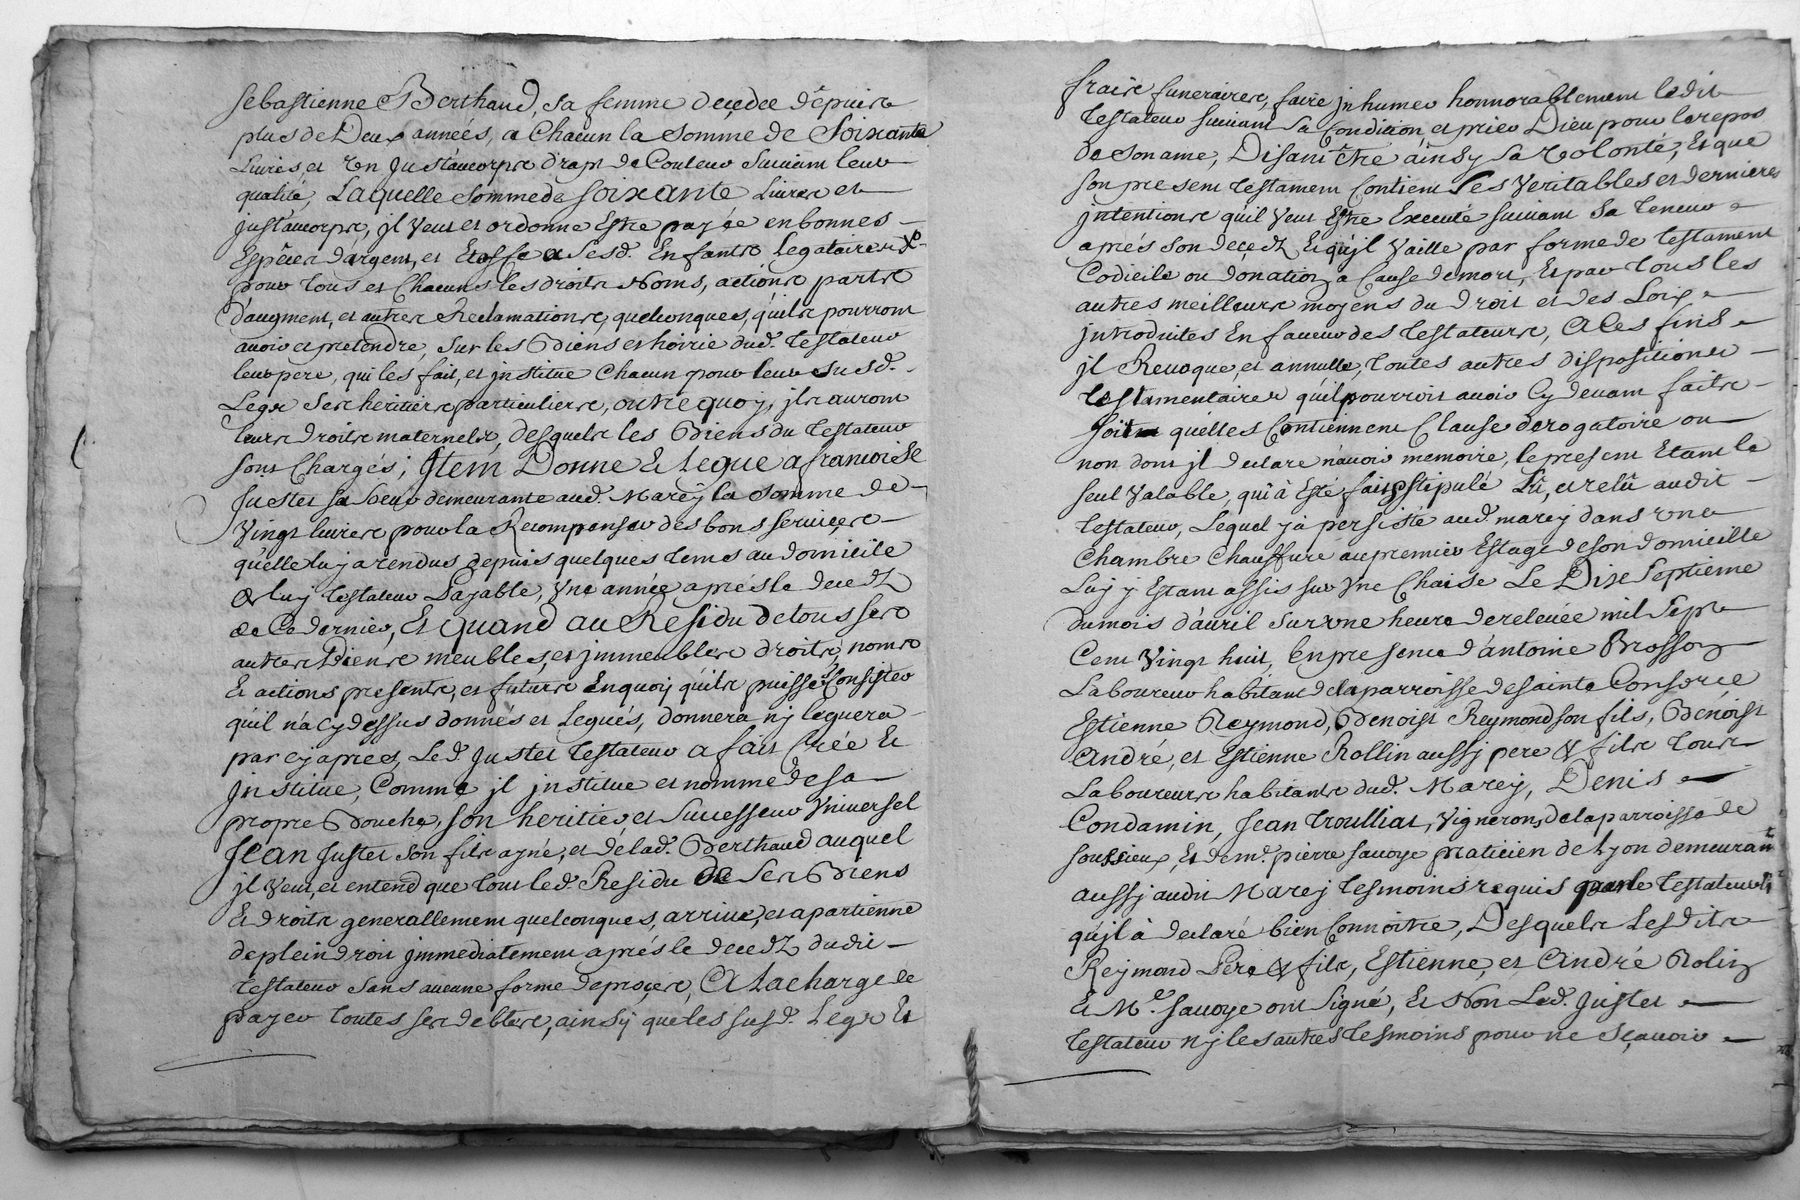 Sebastienne Berthaud, sa femme deçedée dépuis
plus de Deux années, a Chacun la somme de Soixante
Livres, et Un Just'aucorps drapt de Couleur Suivant leur
qualité, Laquelle Somme de soixante Livres et
just'aucorps, jl Veut et ordonne Estre payée en bonnes
Espéces d'argent, et Etoffe a Sesd. Enfants Legataires
pour tous et Chacuns les droits Noms, actions parts
d'augment, et autres Reclamations, quelconques, qu'ils pourront
avoir et pretendre, Sur les Biens et hoirie dud. Testateur
leur pere, qui les fait, et jnstitue Chacun pour leur susd.
Legs Ses heritiers particuliers, outre quoy, jls auront
leurs droits maternels, desquels les Biens du Testateur
sont Chargés; Jtem Donne & Legue a francoise
Justet sa soeur demeurante aud. Marcy la somme de
Vingt livres pour la Recompenser des bons serviçes
qu'elle luy a rendus depuis quelques tems au domicile
luy Testateur Payable, Vne année aprés le decedz
de Ce dernier, Et quand au Residu de tous ses
autres Biens meubles, et jmmeubles droits, noms
Et actions presents, et futurs Enquoy qu'ils puisse Consister
qu'il n'a Cy dessus donnés et Legués, donnera ny leguera
par cy apres, Led. Justet Testateur a fait Créé Et
Jnstitue, Comme jl jnstitue et nomme de sa
propre Bouche, son heritier et Successeur Vniversel
Jean Justet son fils ayné, et de lad. Berthaud auquel
jl Veut, et entend que tout led. Residu de Ses Biens
Et droits generallement quelconques, arrive, et apartienne
de plein droit jmmediatement aprés le decedz dudit
Testateur sans aucune forme de proçés, A La charge de
payer toutes ses debtes, ainsy que les susd. Legs Et
frais funeraires, faire jnhumer honnorablement ledit
Testateur suivant sa Condition et prier Dieu pour le repos
de son ame, Disant Estre ainsy sa Volonté, Et que
son present testament Contient Ses Veritables et dernieres
jntentions qu'il Veut Estre Executé suivant sa teneur
aprés son deçedz Et qu'jl Vaille par forme de testament
Codicile ou donation a Cause de mort, Et par tous les
autres meilleurs moyens du droit et des Loix
jntroduites En faveur des Testateurs, A Ces fins
jl Revoque, et annulle, toutes autres dispositions
testamentaires qu'il pourroit avoir Cy devant faits
soit qu'elles Contiennent Clause derogatoire ou
non dont jl declare n'avoir memoire, le present Etant le
seul Valable, qui à Esté fait, stipulé Lû, et relû audit
testateur, Lequel y à persisté aud. marcy dans vne
Chambre Chauffure au premier Estage de son domicille
Luy y Estant assis sur Vne Chaise Le Dix Septieme
du mois d'avril sur vne heure de relevée mil Sept
Cent Vingt huit, En presence d'antoine Brosson
Laboureur habitant de la parroisse de sainte Consorce
Estienne Reymond, Benoist Reymond son fils, Benoist
André, et Estienne Rollin aussy pere & fils tous
Laboureurs habitants dud. Marcy, Denis
Condamin, Jean Troulliat, Vignerons de la parroisse de
soussieux, Et de md. pierre savoye praticien de Lyon demeurant
aussy audit Marcy tesmoins requis par le testateur
qu'jl à declaré bien Connoitre, Desquels Lesdits
Reymond Pere & fils, Estienne, et André Rolin
Et Me. savoye ont signé, Et Non Led. Justet
testateur ny les autres tesmoins pour ne sçavoir